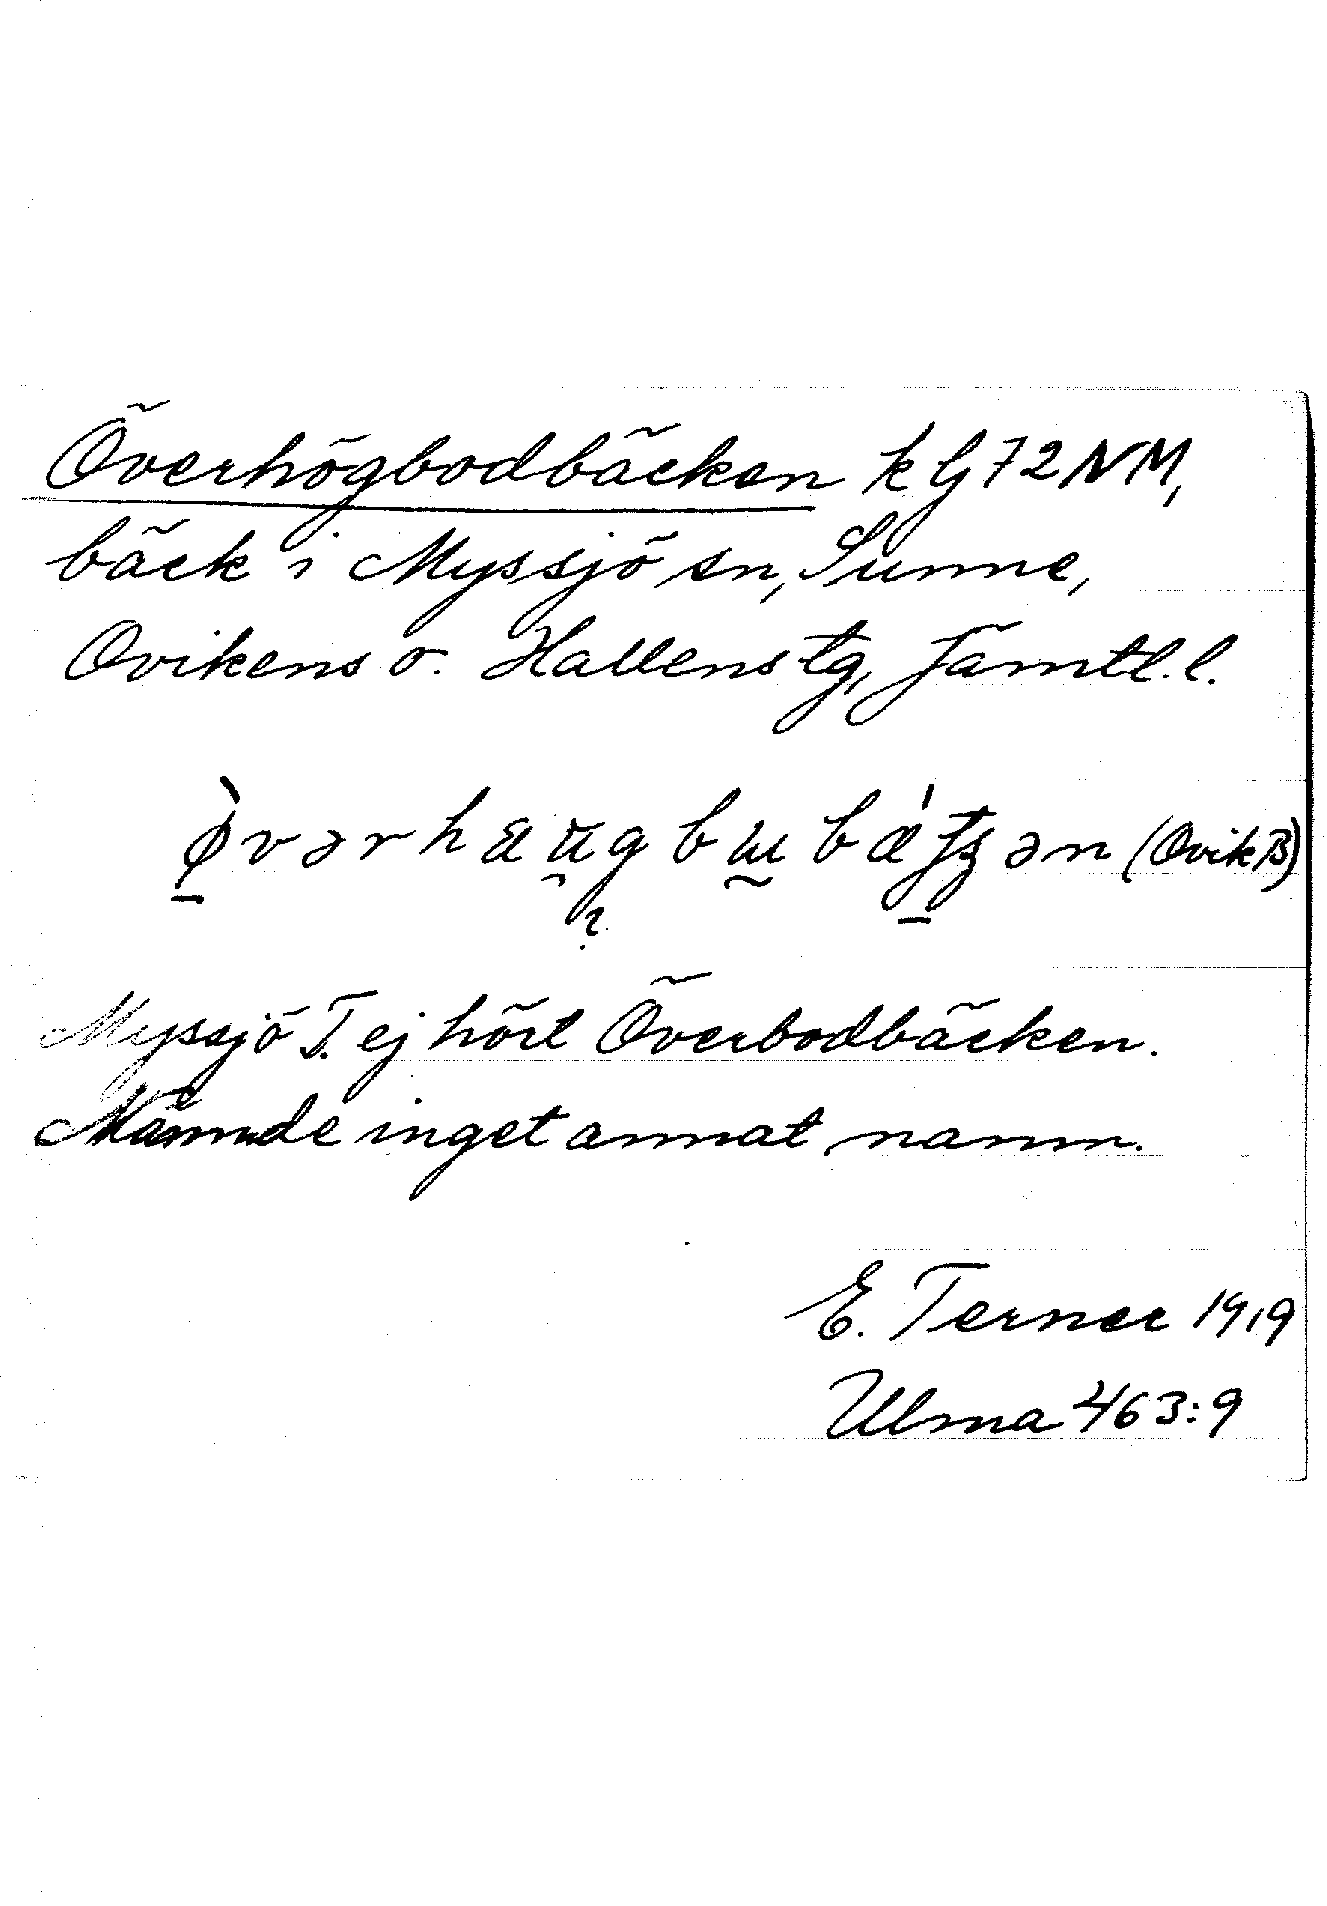 Överhögbodbäcken k G 72 NM,
bäck i Myssjö sn, Sunne,
Ovikens o. Hallens tg, Jämtl. l.
(Ovik B)
Myssjö T. ej hört Överbodbäcken.
Nämnde inget annat namn.
E. Terner 1919
Ulma 463:9